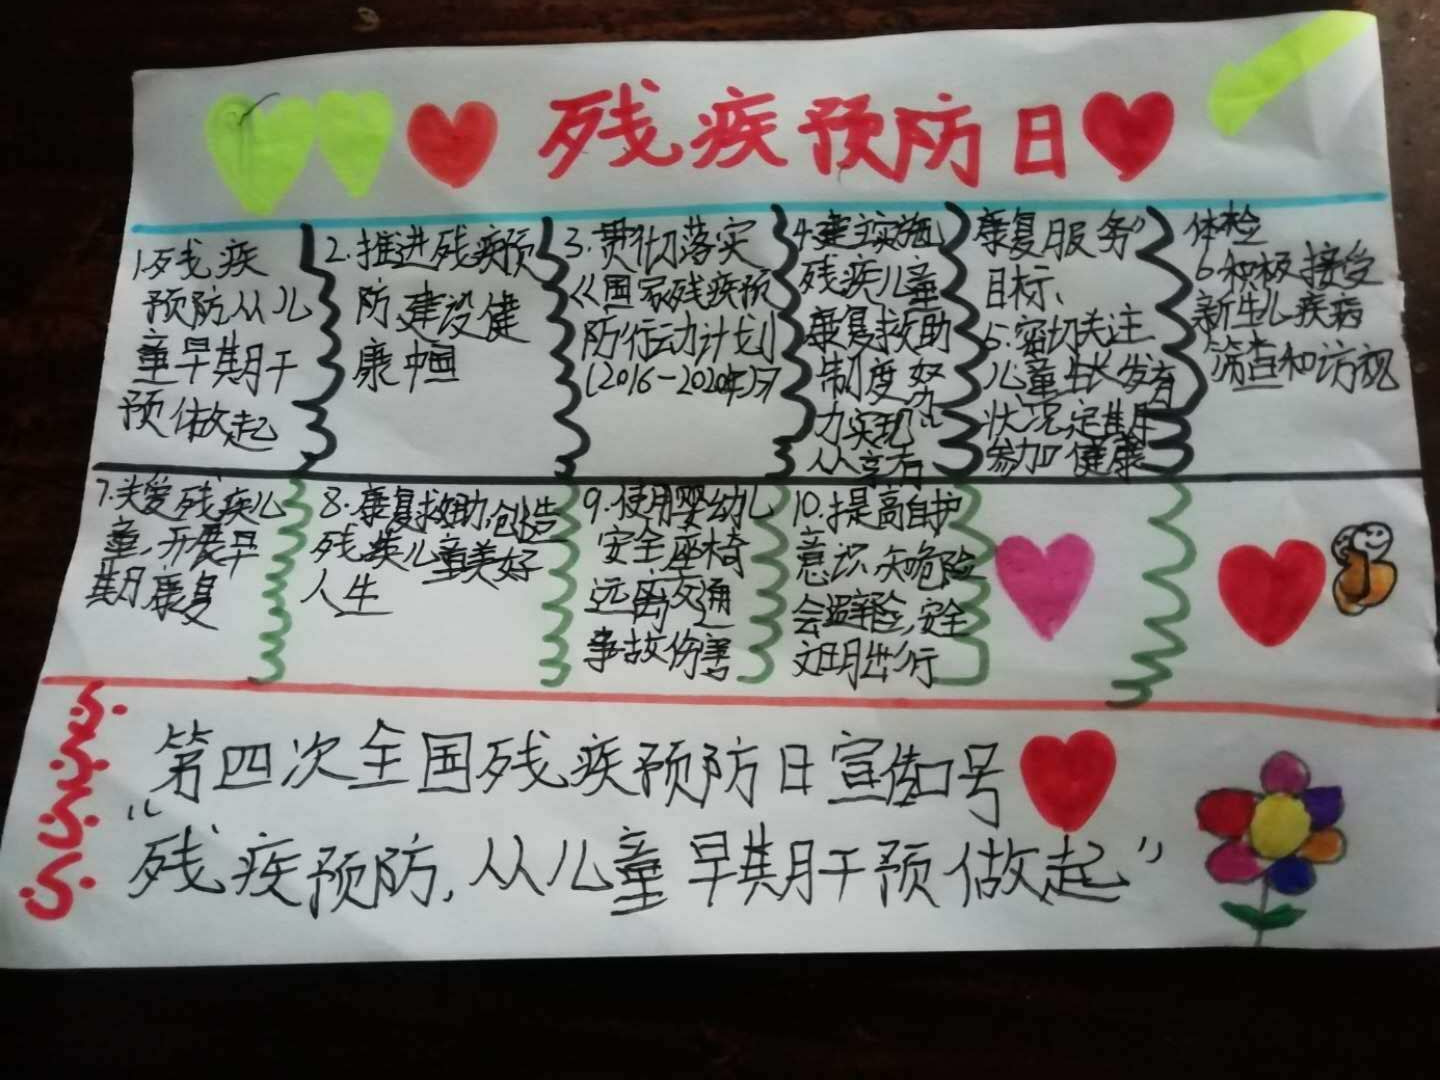 残疾预防日
1.残疾
预防从儿
童早期干
预做起
2.推进残疾预
防建设健
康中国
3.贯彻落实
《国家残疾预
防行动计划
(2016-2020年)》
4.建立实施
残疾儿童
康复救助
制度努
力实现“
人人享有
康复服务”
目标、
5.密切关注
儿童生长发育
状况定期
参加健康
体检
6.积极接受
新生儿疾病
筛查和访视
7.关爱残疾儿
童,开展早
期康复
8.康复救助,创造
残疾儿童美好
人生
9.使用婴幼儿
安全座椅
远离交通
事故伤害
10.提高自护
意识知危险
会避险,安全
文明出行
第四次全国残疾预防日宣传口号
“残疾预防,从儿童早期干预做起”